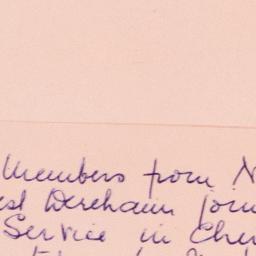 Members from N
est Dereham join
Service in Cher